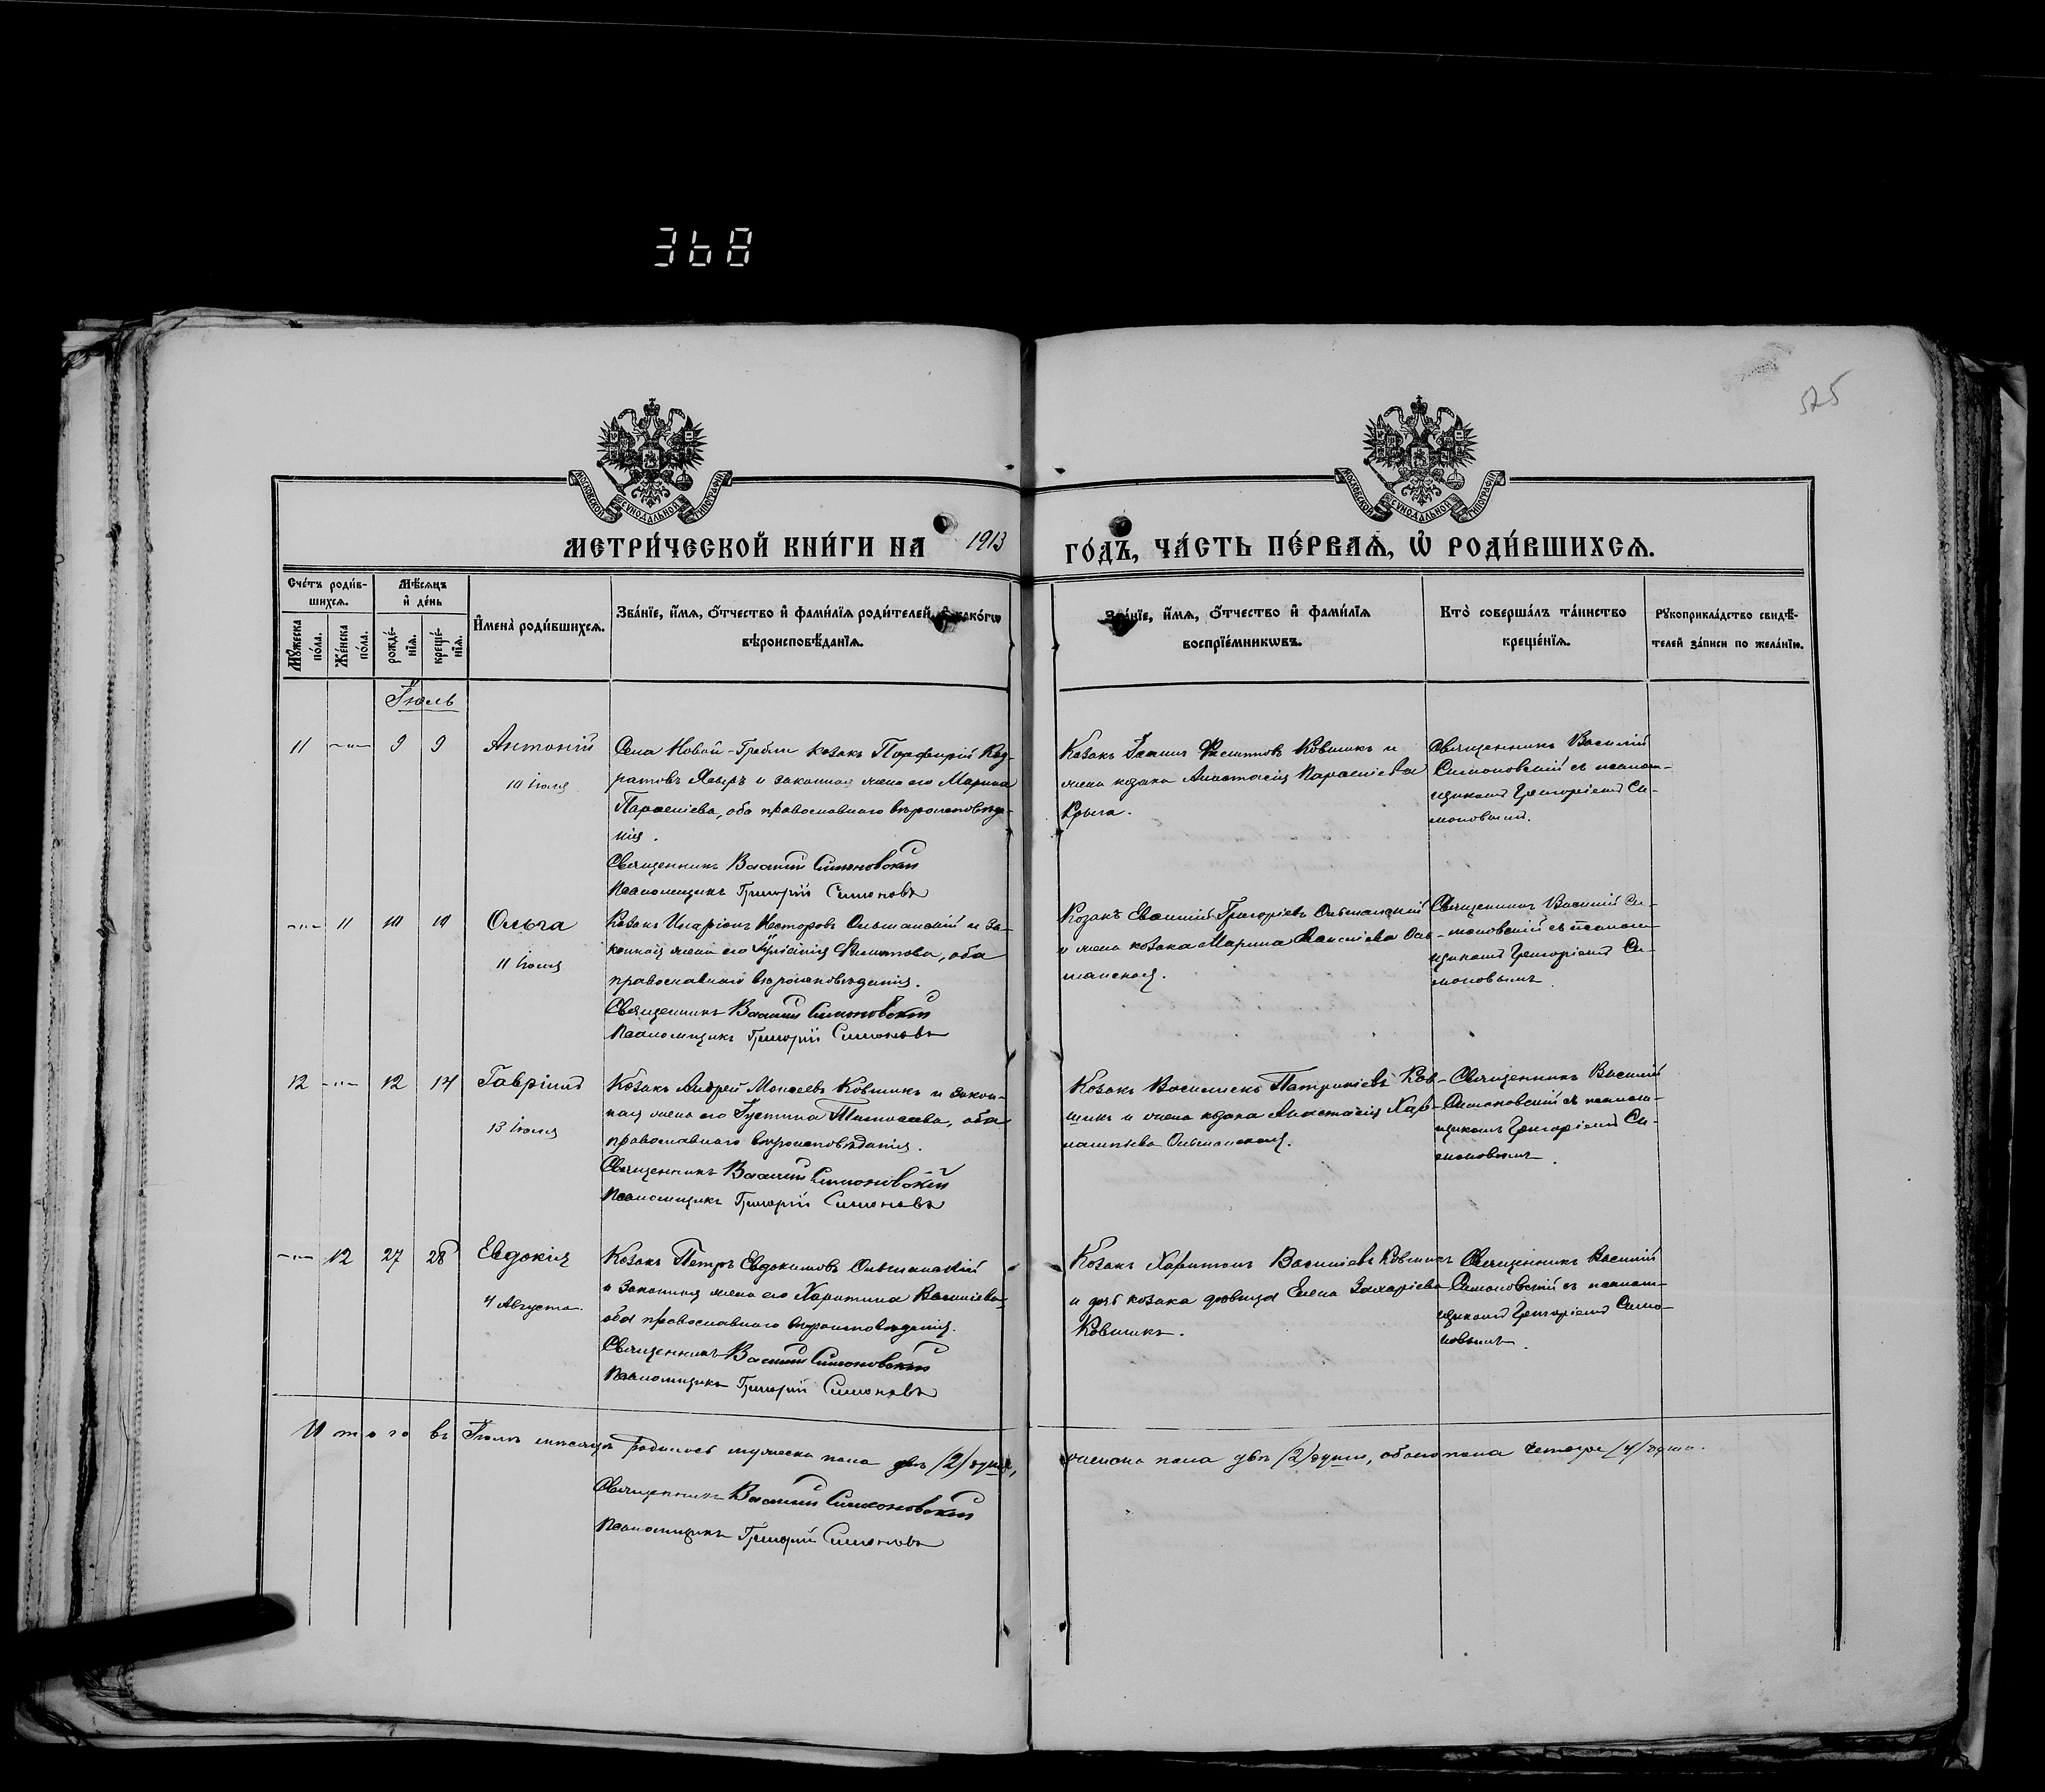 368
525
МОСКОВСКОЙ СѴНОДАЛЬНОЙ ТИПОГРАФІИ
МОСКОВСКОЙ СѴНОДАЛЬНОЙ ТИПОГРАФІИ
МЕТРИ́ЧЕСКОЙ КНИ́ГИ НА 1913 ГО́ДЪ, ЧА́СТЬ ПЕ́РВАѦ, Ѡ҆ РОДИ́ВШИХСѦ.
Сче́тъ роди́в-
шихсѧ.
Мѣ́сѧцъ
и҆ де́нь
Мꙋ́жеска
по́ла.
Же́нска
по́ла.
рожде́-
нїѧ.
креще́-
нїѧ.
И҆мена̀ роди́вшихсѧ.
Зва́нїе, и҆́мѧ, ѻ҆́тчество и҆ фами́лїѧ роди́телей, и҆ како́гѡ
вѣроисповѣ́данїѧ.
Зва́нїе, и҆́мѧ, ѻ҆́тчество и҆ фами́лїѧ
воспрїе́мникѡвъ.
Кто̀ соверша́лъ та́инство
креще́нїѧ.
Рꙋкоприкла́дство свидѣ́-
телей за́писи по жела́нїю.
Іюль
11 -"- 9 9 Антоній
10 Іюля
Села Новой-Гребли козакъ Порфирій Код-
ратовъ и законная жена его Марина
Парѳеніева, оба православнаго вѣроисповѣда-
нія.
Священникъ Василий Симоновскій
Псаломщикъ Григорій Симоновъ
Козакъ Іоаннъ Филиповъ Ковшикъ и
жена козака Анастасія Парѳеніева
Священникъ Василій
Симоновскій съ псалом-
щикомъ Григоріемъ Си-
моновымъ.
-"- 11 10 10 Ольга
11 Іюля
Козакъ Иларіонъ Несторовъ Ольшанскій и за-
конная жена его Филипова, оба
православнаго вѣроисповѣданія.
Священникъ Василий Симоновскій
Псаломщикъ Григорій Симоновъ
Козакъ Евѳимій Григоріевъ Ольшанскій
и жена козака Марина Оль-
шанская.
Священникъ Василій Си-
моновскій съ псалом-
щикомъ Григоріемъ Си-
моновымъ.
12 -"- 12 14 Гавріилъ
13 Іюля
Козакъ Андрей Моисеевъ Ковшикъ и закон-
ная жена его Іустина Тимоѳеева, оба
православнаго вѣроисповѣданія.
Священникъ Василий Симоновскій
Псаломщикъ Григорій Симоновъ
Козакъ Василискъ Патрикіевъ Ков-
шикъ и жена козака Анастасія Хар-
лампіева Ольшанская.
Священникъ Василій
Симоновскій съ псалом-
щикомъ Григоріемъ Си-
моновымъ.
-"- 12 27 28 Евдокія
4 Августа.
Козакъ Петръ Евдокимовъ Ольшанскій
и законная жена его Харитина Василіева,
оба православнаго вѣроисповѣданія.
Священникъ Василий Симоновскій
Псаломщикъ Григорій Симоновъ
Козакъ Харитонъ Василіевъ Ковшикъ
и дочь козака дѣвица Елена Захаріева
Ковшикъ.
Священникъ Василій
Симоновскій съ псалом-
щикомъ Григоріемъ Симо-
новымъ.
Итого въ Іюлѣ мѣсяцѣ родилось мужеска пола двѣ /2/ души, женска пола двѣ /2/ души, обоего пола четыре /4/ души.
Священникъ Василий Симоновскій
Псаломщикъ Григорій Симоновъ